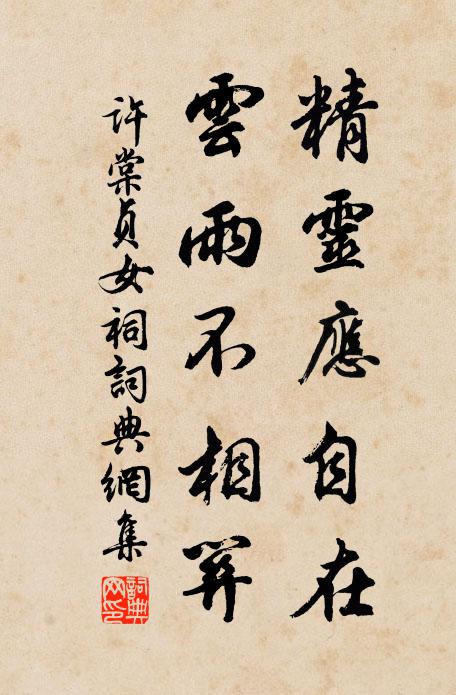 精靈應自在
雲雨不相關
許棠貞女祠詞典網集
詞典
網印